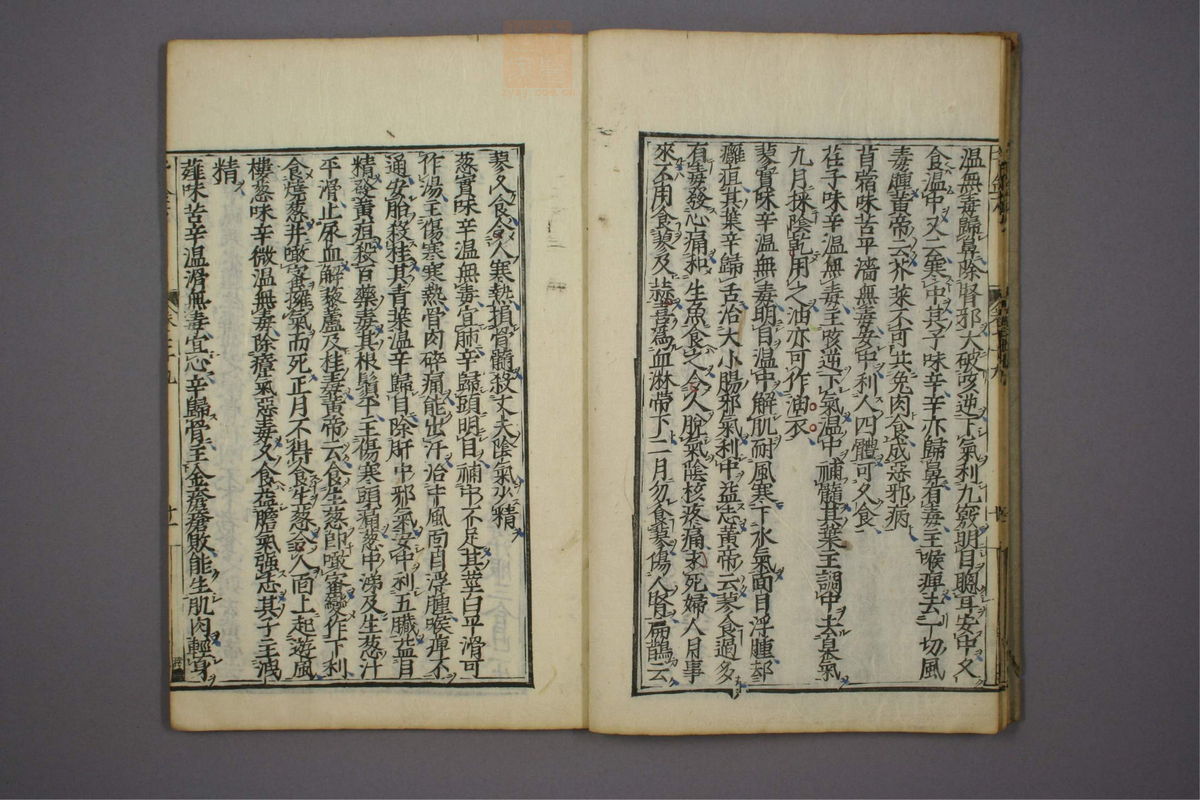 温無毒歸鼻除腎邪大破咳逆下氣利九竅明目聰耳安中久
食温中又云寒中其子味辛辛亦歸鼻有毒主喉痺去一切風
毒腫黄帝云芥菜不可共兔肉食成惡邪病
苜蓿味苦平濇無毒安中利人四體可久食
荏子味辛温無毒主咳逆下氣温中補髓其葉主調中去臭氣
九月採陰乾用之油亦可作油衣
蓼實味辛温無毒明目温中解肌耐風寒下水氣面目浮腫却
癰疽其葉辛歸舌治大小腸邪氣利中益志黄帝云蓼食過多
有毒發心痛和生魚食之令人脫氣陰核疼痛求死婦人月事
來不用食蓼及蒜喜為血淋帶下二月勿食蓼傷人腎扁鵲云
蓼久食令人寒熱損骨髓殺丈夫陰氣少精
葱實味辛温無毒宜肺辛歸頭明目補中不足其莖白平滑可
作湯主傷寒寒熱骨肉碎痛能出汗治中風面目浮腫喉痺不
通安胎殺桂其青葉温辛歸目除肝中邪氣安中利五臟益目
精發黄疸殺百藥毒其根鬚平主傷寒頭痛葱中涕及生葱汁
平滑止尿血解藜蘆及桂毒黄帝云食生葱即噉蜜變作下利
食燒葱并噉蜜擁氣而死正月不得食生葱令人面上起遊風
樓葱味辛微温無毒除瘴氣惡毒久食益膽氣强志其子主洩
精
薤味苦辛温滑無毒宜心辛歸骨主金瘡瘡敗能生肌肉輕身